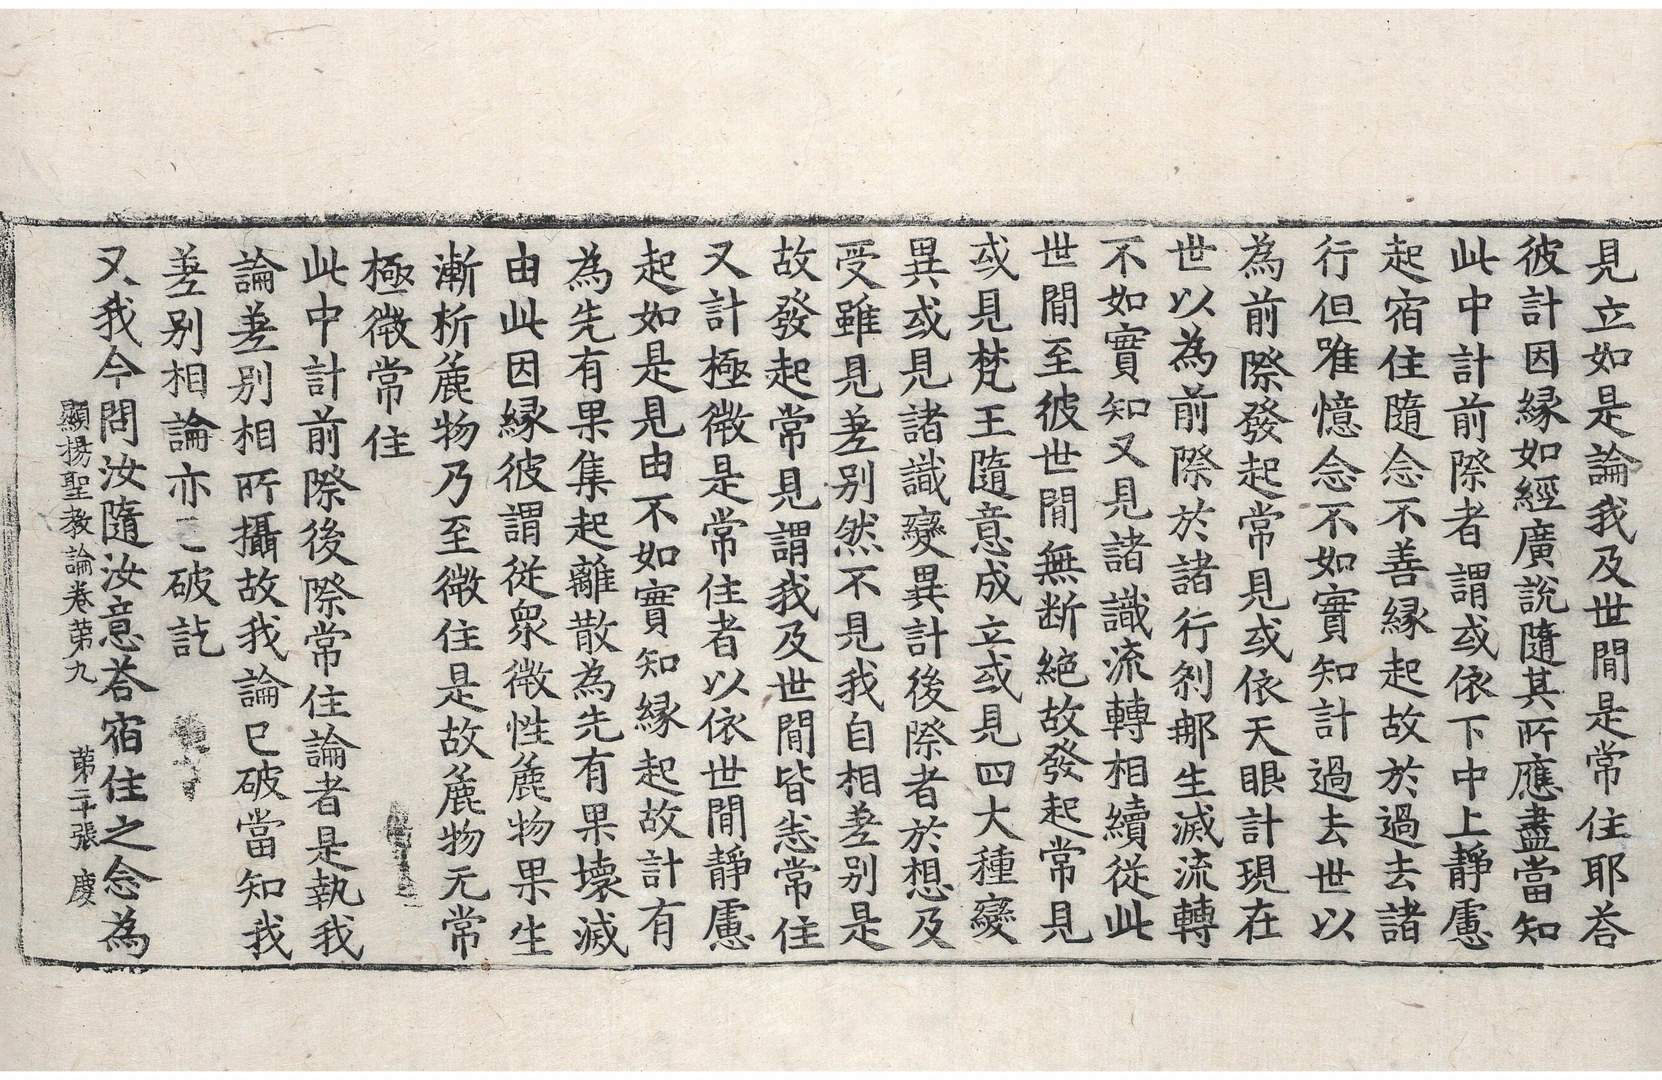 見立如是論我及世閒是常住耶荅
彼計因縁如經廣說隨其所應盡當知
此中計前際者謂或依下中上靜慮
起宿住隨念不善縁起故於過去諸
行但唯憶念不如實知計過去世以
為前際發起常見或依天眼計現在
世以為前際於諸行刹那生滅流轉
不如實知又見諸識流轉相續從此
世閒至彼世閒無断絶故發起常見
或見梵王隨意成立或見四大種變
異或見諸識變異計後際者於想及
受雖見差别然不見我自相差别是
故發起常見謂我及世閒皆悉常住
又計極微是常住者以依世閒靜慮
起如是見由不如實知縁起故計有
為先有果集起離散為先有果壞滅
由此因縁彼謂從衆微性麁物果生
漸析麁物乃至微住是故麁物无常
極微常住
此中計前際後際常住論者是執我
論差别相所攝故我論已破當知我
差别相論亦已破訖
又我今問汝隨汝意荅宿住之念為
顯揚聖教論卷第九 第二十張 慶